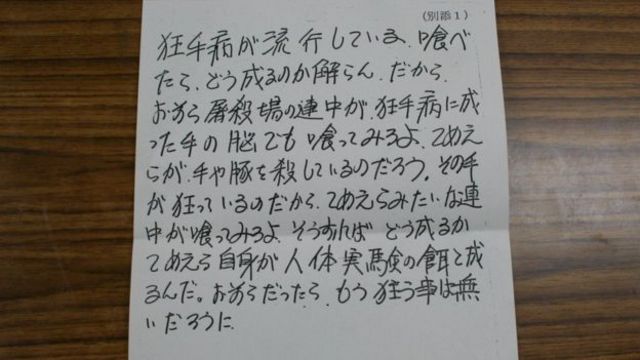 (別添1)
狂牛病が流行している、喰べ
たら、どう成るのか解らん、だから、
おまえら屠殺場の連中が、狂牛病に成
った牛の脳でも喰ってみろよ、てめえ
らが、牛や豚を殺しているのだろう。その牛
が狂っているのだから、てめえらみたいな連
中が喰ってみろよ、そうすれば どう成るか
てめえら自身が人体実験の餌と成
るんだ。おまえらだったら、もう狂う事は無
いだろうに